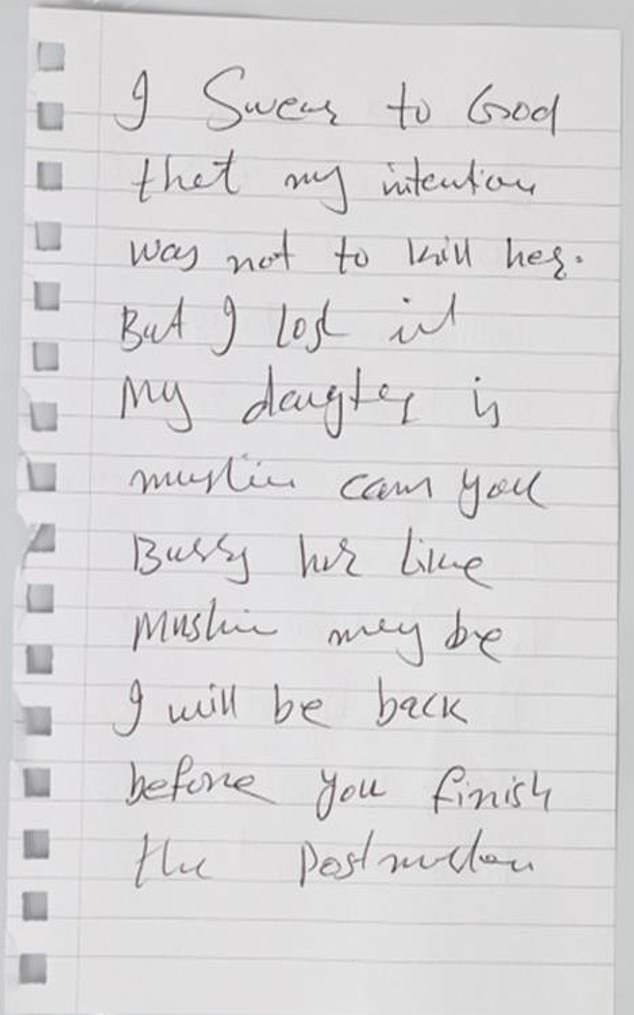 I Swear to God
that my intention
was not to kill her.
But I Lost it
My daugter is
muslim can you
Burry her like
Muslim may be
I will be back
before you finish
the Postmortem